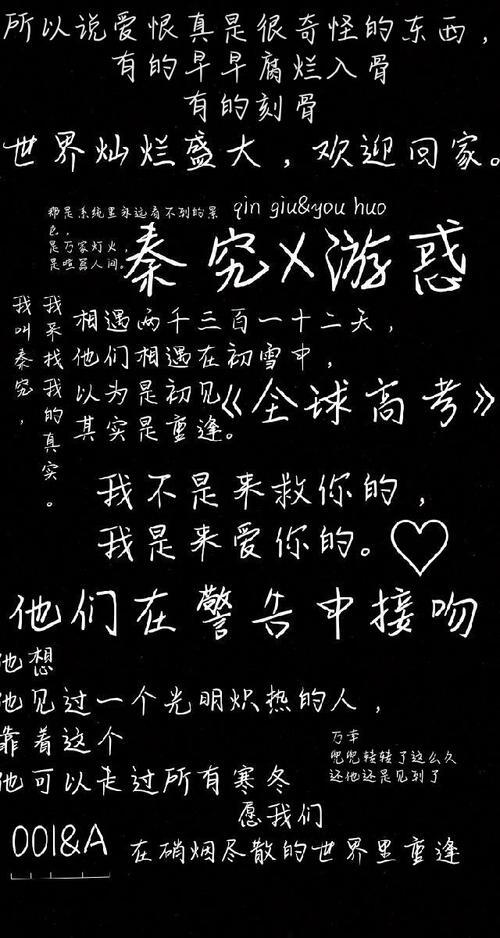 所以说爱恨真是很奇怪的东西，
有的早早腐烂入骨
有的刻骨
世界灿烂盛大，欢迎回家。
那是系统里永远看不到的景
色，
是万家灯火，
是喧嚣人间。
qin giu&you huo
秦究X游惑
我叫秦究，
我来找我的真实。
相遇两千三百一十二天，
他们相遇在初雪中，
以为是初见
其实是重逢。
《全球高考》
我不是来救你的，
我是来爱你的。♡
他们在警告中接吻
他想
他见过一个光明炽热的人，
靠着这个
他可以走过所有寒冬
万幸
兜兜转转了这么久
还他还是见到了
愿我们
001&A
在硝烟尽散的世界里重逢